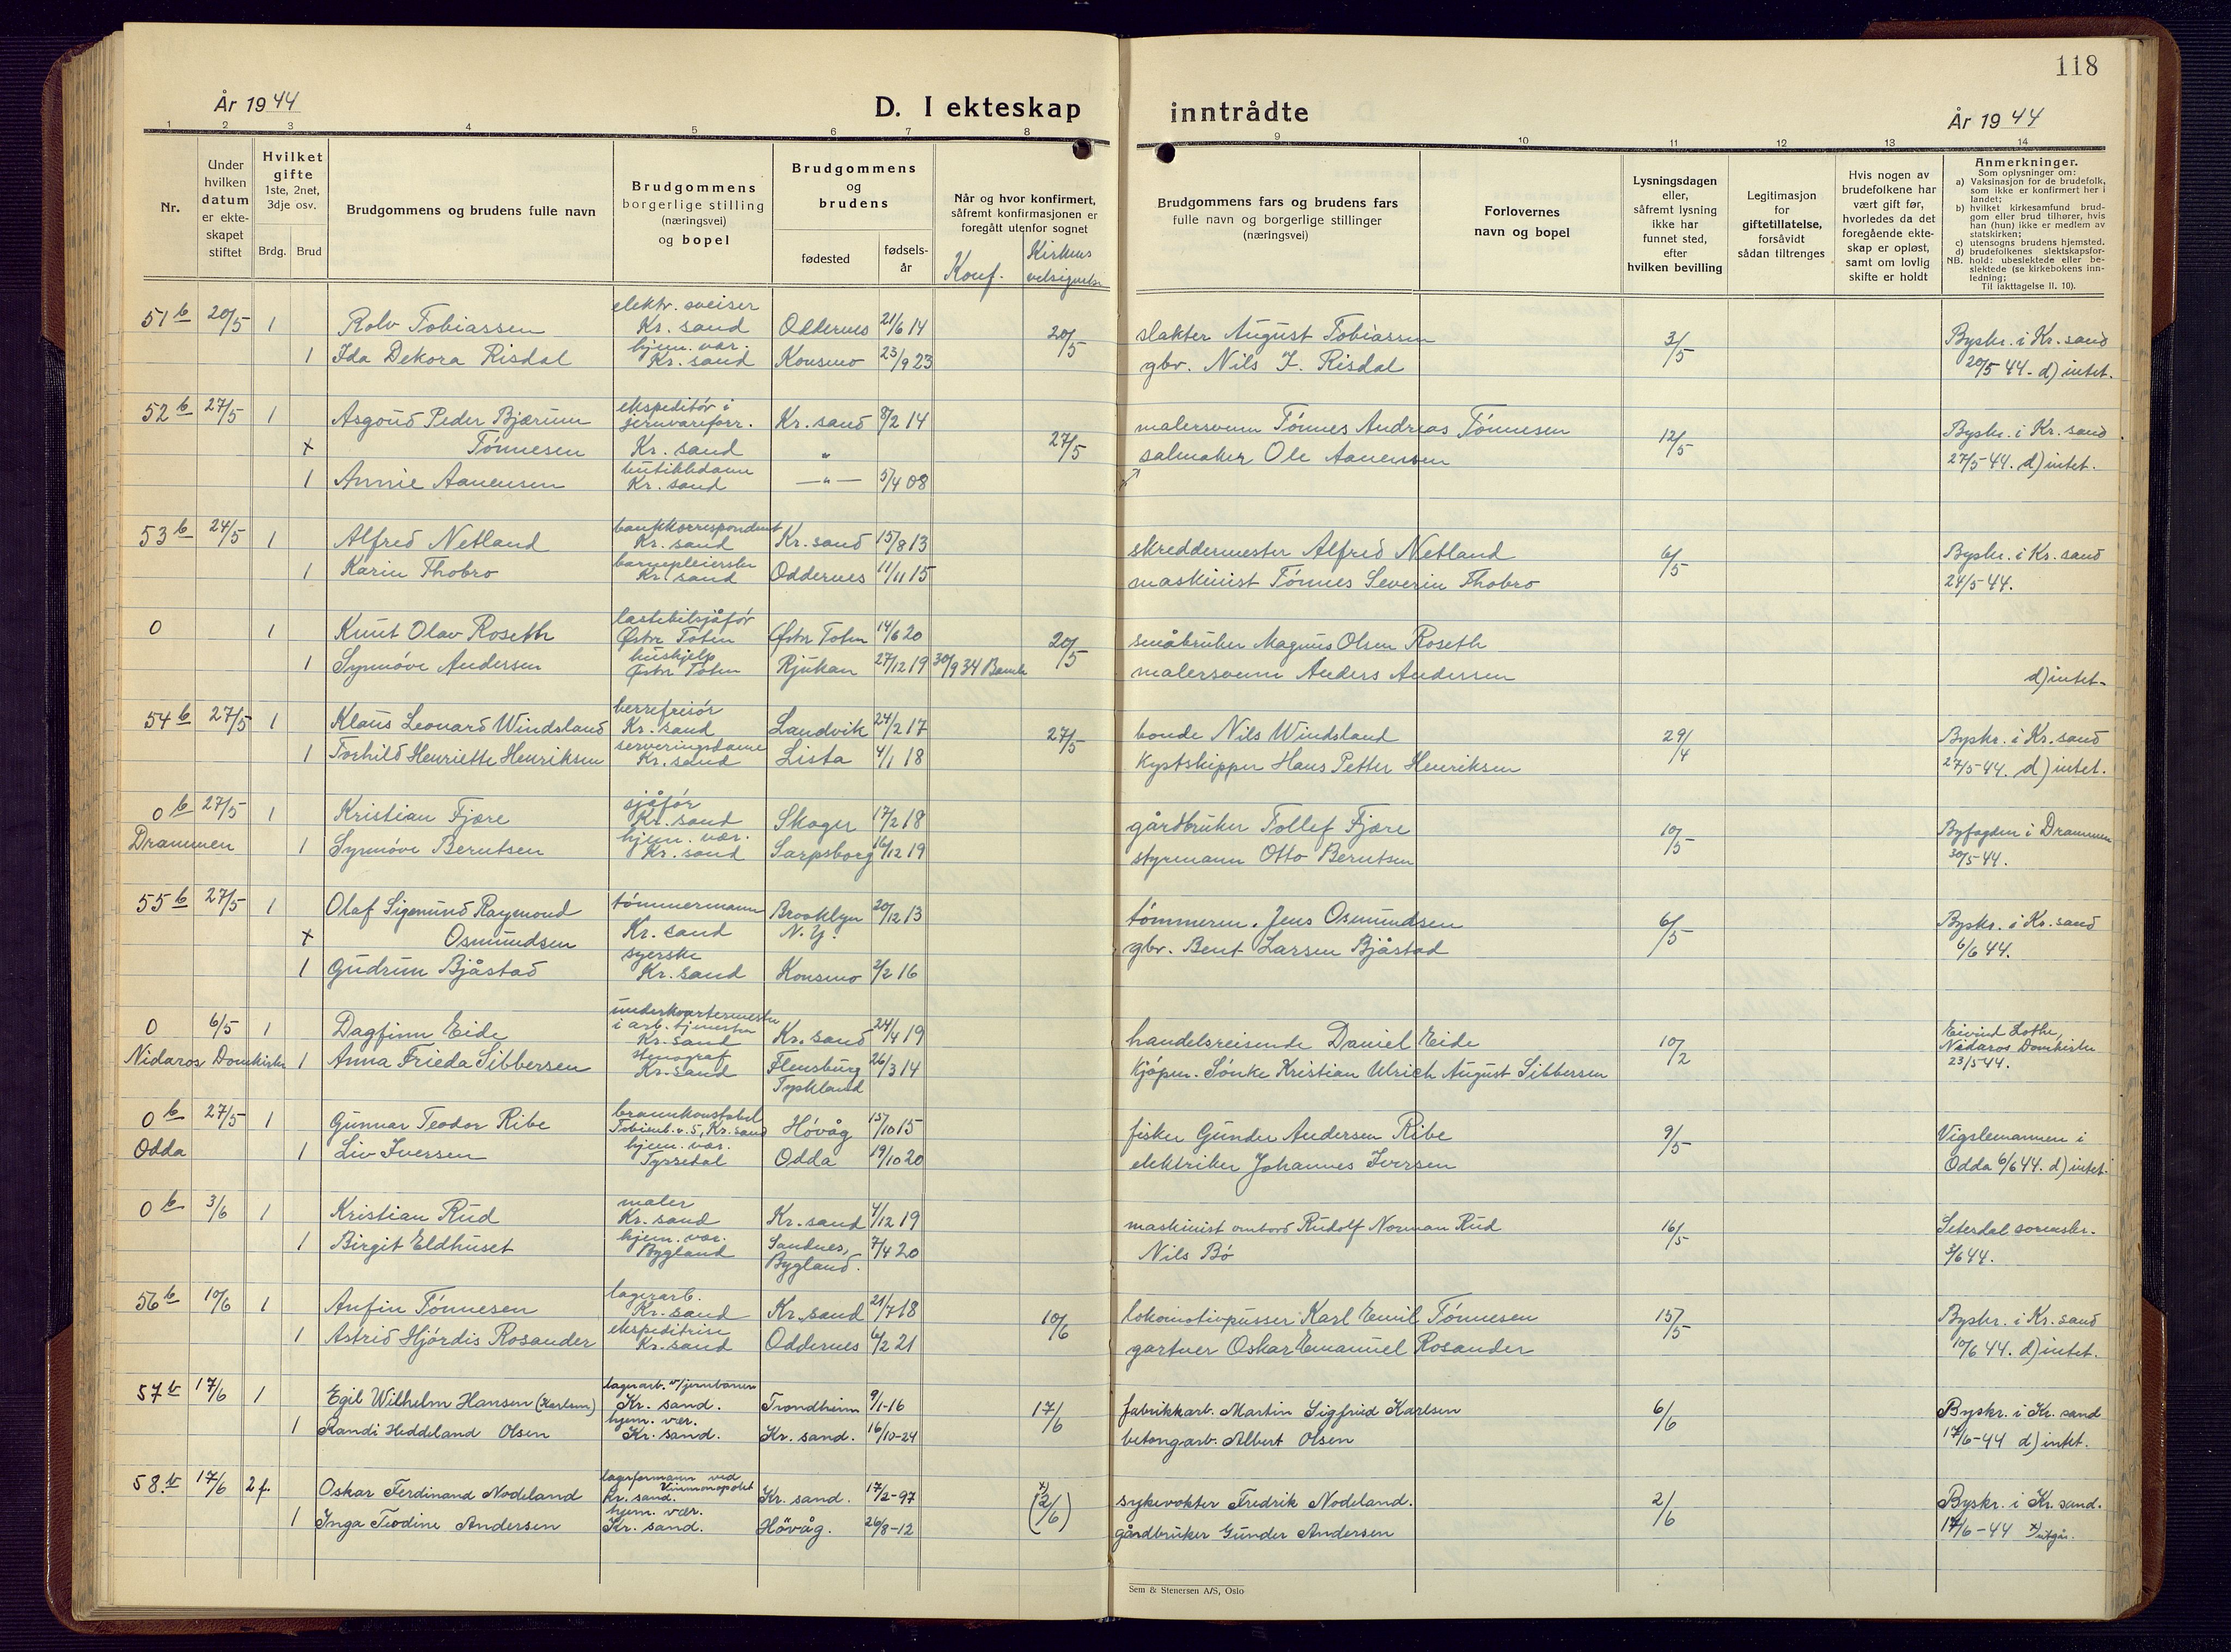 118
År 1944
D. I ekteskap inntrådte
År 1944
1 2 3 4 5 6 7 8 9 10 11 12 13 14
Nr.
Under
hvilken
datum
er ekte-
skapet
stiftet
Hvilket
gifte
1ste, 2net,
3dje osv.
Brdg. Brud
Brudgommens og brudens fulle navn
Brudgommens
borgerlige stilling
(næringsvei)
og bopel
Brudgommens
og
brudens
fødested
fødsels-
år
Når og hvor konfirmert,
såfremt konfirmasjonen er
foregått utenfor sognet
Konf.
Kirkens
velsignelse
Brudgommens fars og brudens fars
fulle navn og borgerlige stillinger
(næringsvei)
Forlovernes
navn og bopel
Lysningsdagen
eller,
såfremt lysning
ikke har
funnet sted,
efter
hvilken bevilling
Legitimasjon
for
giftetillatelse,
forsåvidt
sådan tiltrenges
Hvis nogen av
brudefolkene har
vært gift før,
hvorledes da det
foregående ekte-
skap er opløst,
samt om lovlig
skifte er holdt
Anmerkninger.
Som oplysninger om:
a) Vaksinasjon for de brudefolk,
som ikke er konfirmert her i
landet;
b) hvilket kirkesamfund brud-
gom eller brud tilhører, hvis
han (hun) ikke er medlem av
statskirken;
c) utensogns brudens hjemsted.
d) brudefolkenes slektskapsfor-
NB. hold: ubeslektede eller be-
slektede (se kirkebokens inn-
ledning;
Til iakttagelse II. 10).
51 b 20/5 1 Rolv Tobiassen elektr. sveiser Kr. sand Oddernes 21/6 14 20/5 slakter August Tobiassen 3/5 Byskr. i Kr. sand
1 Ida Dekora Risdal hjem. vær. Kr. sand Konsmo 23/9 23 gbr. Nils J. Risdal 20/5 44. d) intet.
52 b 27/5 1 Asgoud Peder Bjærum ekspeditør i jernvareforr. Kr. sand 8/2 14 malersvenn Tønnes Andreas Tønnesen 12/5 Byskr. i Kr. sand
x Tønnesen Kr. sand " 27/5 salmaker Ole Aanensen 27/5 44. d) intet.
1 Annie Aanensen butikkdame Kr. sand —"— 5/4 08
53 b 24/5 1 Alfred Netland bankkorrespondent Kr. sand Kr. sand 15/8 13 skreddermester Alfred Netland 6/5 Byskr. i Kr. sand
1 Karin Thobro barnepleierske Kr. sand Oddernes 11/11 15 maskinist Tønnes Severin Thobro 24/5 44.
0 1 Knut Olav Roseth lastebilsjåfør Østre Toten Østre Toten 14/6 20 20/5 småbruker Magnus Olsen Roseth
1 Synnøve Andersen hushjelp Østre Toten Rjukan 27/12 19 30/9 34 Bamle malersvenn Anders Andersen d) intet.
54 b 27/5 1 Klaus Leonard Windsland herrefrisør Kr. sand Landvik 24/2 17 27/5 bonde Nils Windsland 29/4 Byskr. i Kr. sand
1 Torhild Henriette Henriksen serveringsdame Kr. sand Lista 4/1 18 Kystskipper Hans Petter Henriksen 27/5 44. d) intet.
0 b 27/5 1 Kristian Fjære sjåfør Kr. sand Skoger 17/2 18 gårdbruker Tollef Fjære 10/5 Byfogden i Drammen
Drammen 1 Synnøve Berntsen hjem. vær. Kr. sand Sarpsborg 16/12 19 styrmann Otto Berntsen 30/5 44.
55 b 27/5 1 Olaf Sigmund Raymond tømmermann Brooklyn 20/12 13 tømmerm. Jens Osmundsen 6/5 Byskr. i Kr. sand
x Osmundsen Kr. sand N. Y. gbr. Bent Larsen Bjåstad 6/6 44.
1 Gudrun Bjåstad syerske Kr. sand Konsmo 2/2 16
0 6/5 1 Dagfinn Eide underkvartermester i arb. tjenesten Kr. sand Kr. sand 24/4 19 handelsreisende Daniel Eide 10/2 Eivind Lothe,
Nidaros Domkirke 1 Anna Frieda Sibbersen stenograf Kr. sand Flensburg Tyskland 26/3 14 Kjøpm. Sönke Kristian Ulrich August Sibbersen Nidaros Domkirke 23/5 44.
0 b 27/5 1 Gunnar Teodor Ribe brannkonstabel Tobienb. v. 5, Kr. sand Høvåg 15/10 15 fisker Gunder Andersen Ribe 9/5 Vigslemannen i
Odda 1 Liv Iversen hjem. vær. Tyssedal Odda 19/10 20 elektriker Johannes Iversen Odda 6/6 44. d) intet.
0 b 3/6 1 Kristian Rud maler Kr. sand Kr. sand 4/12 19 maskinist ombord Rudolf Norman Rud 16/5 Setesdal sorenskr.
1 Birgit Eldhuset hjem. vær. Bygland Sandnes, Bygland. 7/4 20 Nils Bø 3/6 44.
56 b 10/6 1 Anfin Tønnesen lagerarb. Kr. sand Kr. sand 21/7 18 10/6 lokomotivpusser Karl Emil Tønnesen 15/5 Byskr. i Kr. sand
1 Astrid Hjördis Rosander ekspeditrise Kr. sand Oddernes 6/2 21 gartner Oskar Emanuel Rosander 10/6 44. d) intet.
57 b 17/6 1 Egil Wilhelm Hansen (Karlsen) lagerarb. v/jernbanen Kr. sand. Trondheim 9/1-16 17/6 fabrikkarb. Martin Sigfried Karlsen 6/6 Byskr. i Kr. sand
1 Randi Heddeland Olsen hjem. vær. Kr. sand. Kr. sand. 16/10-24 betongarb. Albert Olsen 17/6-44 d) intet.
58. b 17/6 2 f. Oskar Ferdinand Nodeland lagerformann ved Vinmonopolet Kr. sand. Kr. sand. 17/2-97 x) (2/6) sykevokter Fredrik Nodeland. 2/6 Byskr. i Kr. sand.
1 Inga Teodine Andersen hjem. vær. Kr. sand. Hövåg. 26/8-12 gårdbruker Gunder Andersen 17/6-44 x) utgår.
Sem & Stenersen A/S, Oslo